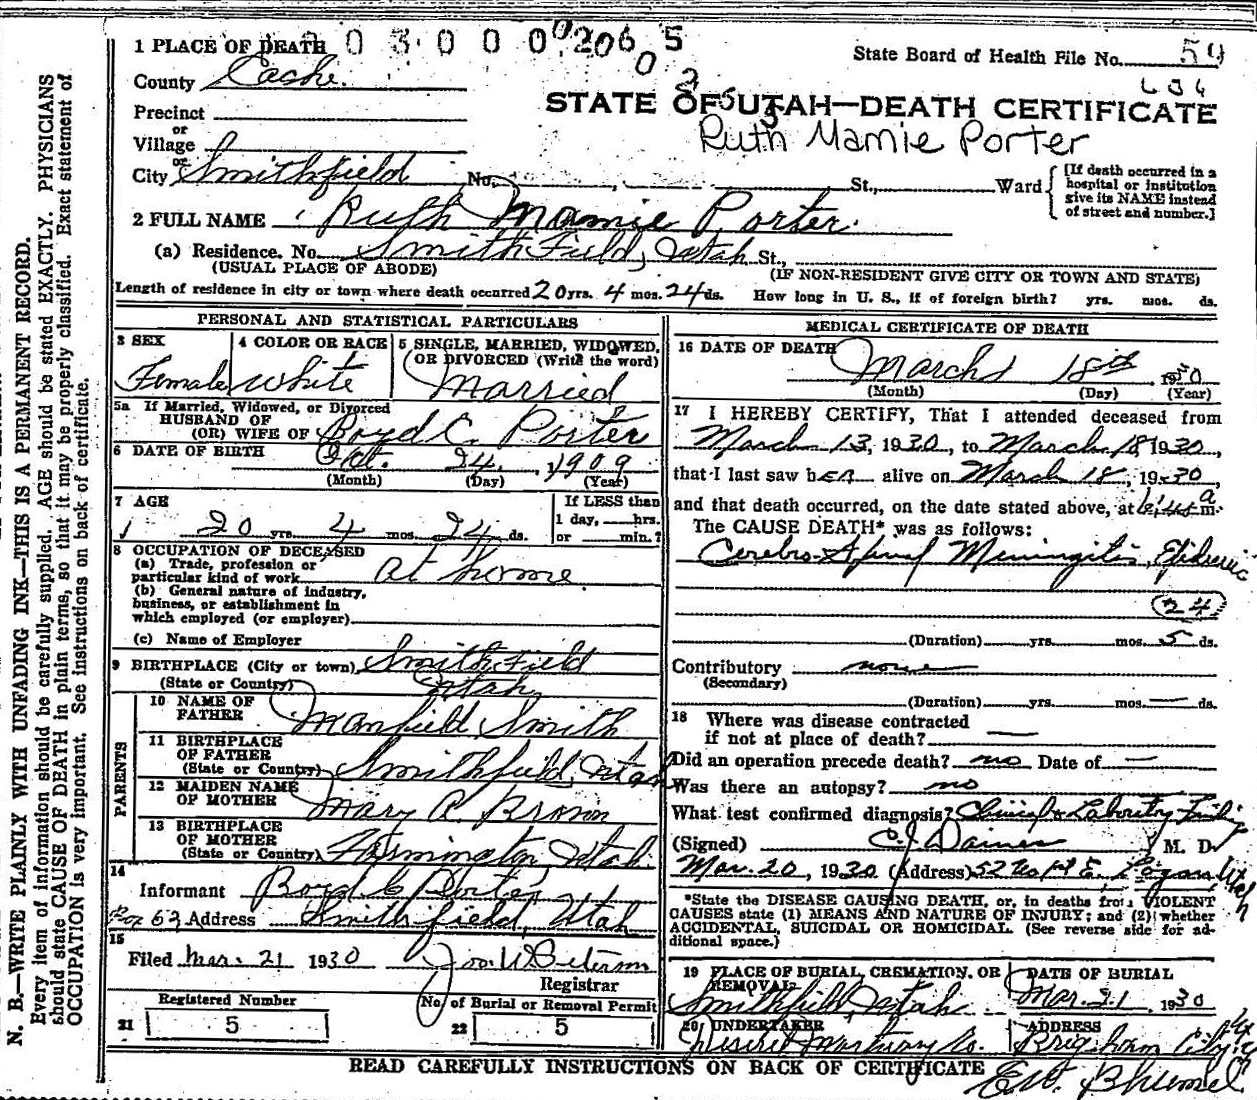 1 PLACE OF DEATH
County Cache.
Precinct
or
Village
or
City Smithfield No. St., Ward
[If death occurred in a hospital or institution give its NAME instead of street and number.]
State Board of Health File No. 59
STATE OF UTAH—DEATH CERTIFICATE
Ruth Mamie Porter
2 FULL NAME Ruth Mamie Porter.
(a) Residence. No. Smithfield, Utah St.,
(USUAL PLACE OF ABODE) (IF NON-RESIDENT GIVE CITY OR TOWN AND STATE)
Length of residence in city or town where death occurred 20 yrs. 4 mos. 24 ds. How long in U. S., if of foreign birth? yrs. mos. ds.
PERSONAL AND STATISTICAL PARTICULARS
3 SEX
Female
4 COLOR OR RACE
White
5 SINGLE, MARRIED, WIDOWED, OR DIVORCED (Write the word)
Married
5a If Married, Widowed, or Divorced
HUSBAND OF
(OR) WIFE OF Boyd C. Porter
6 DATE OF BIRTH Oct. 24, 1909
(Month) (Day) (Year)
7 AGE
20 yrs. 4 mos. 24 ds.
If LESS than
1 day, hrs.
or min.?
8 OCCUPATION OF DECEASED
(a) Trade, profession or
particular kind of work At home
(b) General nature of industry,
business, or establishment in
which employed (or employer)
(c) Name of Employer
9 BIRTHPLACE (City or town) Smithfield
(State or Country) Utah
PARENTS
10 NAME OF
FATHER Manfield Smith
11 BIRTHPLACE
OF FATHER
(State or Country) Smithfield, Utah
12 MAIDEN NAME
OF MOTHER Mary A. Brown
13 BIRTHPLACE
OF MOTHER
(State or Country) Farmington, Utah
14
Informant Boyd C. Porter
Box 63 Address Smithfield, Utah
15
Filed Mar. 21 1930 Jos. W. Peterson
Registrar
Registered Number
21 5
No. of Burial or Removal Permit
22 5
MEDICAL CERTIFICATE OF DEATH
16 DATE OF DEATH March 18th 1930
(Month) (Day) (Year)
17 I HEREBY CERTIFY, That I attended deceased from
March 13, 1930, to March 18, 1930,
that I last saw her alive on March 18, 1930,
and that death occurred, on the date stated above, at m.
The CAUSE DEATH* was as follows:
Cerebro-Spinal Meningitis, Epidemic
24
(Duration) yrs. mos. 5 ds.
Contributory none
(Secondary)
(Duration) yrs. mos. — ds.
18 Where was disease contracted
if not at place of death? —
Did an operation precede death? no Date of —
Was there an autopsy? no
What test confirmed diagnosis? Clinical & Laboratory
(Signed) C. J. Daines M. D.
Mar. 20, 1930 (Address) Logan, Utah
*State the DISEASE CAUSING DEATH, or, in deaths from VIOLENT
CAUSES state (1) MEANS AND NATURE OF INJURY; and (2) whether
ACCIDENTAL, SUICIDAL OR HOMICIDAL. (See reverse side for ad-
ditional space.)
19 PLACE OF BURIAL, CREMATION, OR REMOVAL
Smithfield, Utah
DATE OF BURIAL
Mar. 21. 1930
20 UNDERTAKER
Deseret Mortuary Co.
ADDRESS
Brigham City
READ CAREFULLY INSTRUCTIONS ON BACK OF CERTIFICATE
N. B.—WRITE PLAINLY WITH UNFADING INK—THIS IS A PERMANENT RECORD.
Every item of information should be carefully supplied. AGE should be stated EXACTLY. PHYSICIANS
should state CAUSE OF DEATH in plain terms, so that it may be properly classified. Exact statement of
OCCUPATION is very important. See instructions on back of certificate.